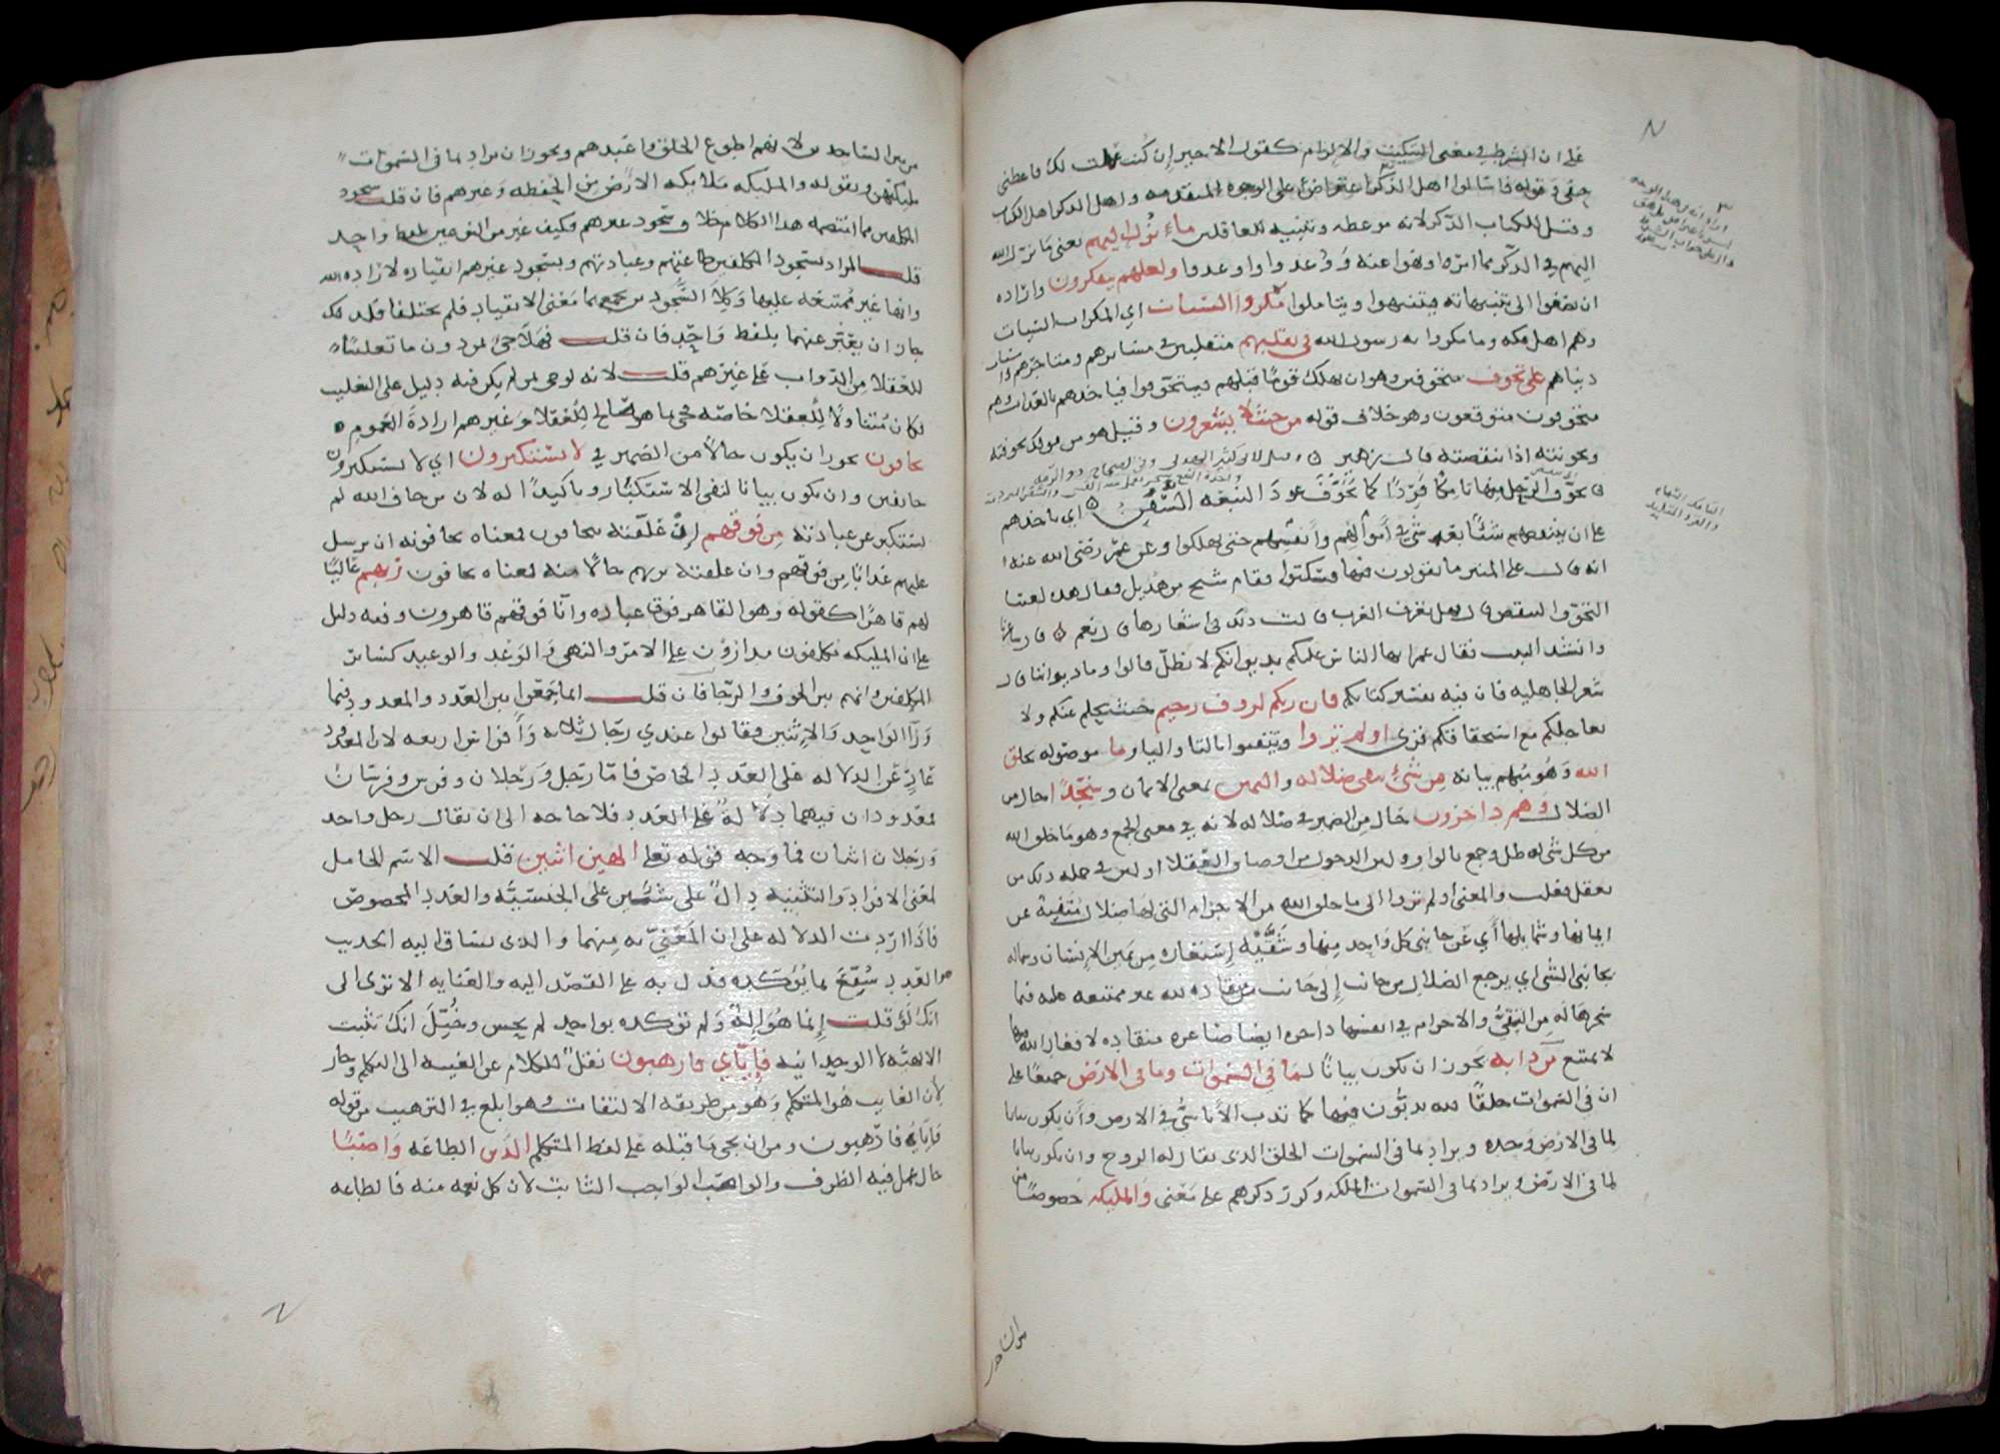 على ان الشرط في معنى التبكيت والالزام كقول الاجير إن كُنتُ عملت لك فاعطني
حقي وقوله فاسالوا اهل الذكر اعتراض على الوجوه المتقدمه واهل الذكر اهل الكتاب
وقيل للكتاب الذكر لانه موعظه وتنبيه للغافلين ماء نُزل اليهم يعني ما نزل الله
اليهم في الذكر مما امروا به ونهوا عنه ووُعدوا واوعدوا ولعلهم يتفكرون واراده
ان يصغوا الى تنبيهاته فيتنبهوا ويتاملوا مكروا السيئات اي المكرات السيئات
وهم اهل مكه وما مكروا به رسول الله في تقلبهم متقلبين في مسايرهم ومتاجرهم واسباب
دنياهم على تخوف متخوفين وهو ان يهلك قومًا قبلهم فيتخوفوا فياخذهم بالعذاب وهم
متخوفون متوقعون وهو خلاف قوله من حيث لا يشعرون وقيل هو من قولك تخوفته
وتخونته اذا تنقصته قال زهير
تخوّف الرحل منها تامكًا قَرِدًا كما تخوّف عود النبعه السَّفِنُ اي ياخذهم
على ان يتنقصهم شيئًا بعد شيء في أموالهم وأنفسهم حتى يهلكوا وعن عمر رضي الله عنه
انه قال على المنبر ما تقولون فيها فسكتوا فقام شيخ من هذيل فقال هذه لغتنا
التخوف التنقص قال فهل تعرف العرب ذلك في اشعارها قال نعم قال شاعرنا
وانشد البيت فقال عمر ايها الناس عليكم بديوانكم لا تضلّ قالوا وما ديواننا قال
شعر الجاهليه فان فيه تفسير كتابكم فان ربكم لروف رحيم حيث يحلم عنكم ولا
يعاجلكم مع استحقاقكم قرئ اولم يروا ويتفيوا بالتا واليا وما موصوله بخلق
الله وهو مبهم بيانه من شيء يتفيو ظلاله واليمين بمعنى الايمان وسُجّدًا حال من
الظلال وهم داخرون حال من الضمير في ظلاله لانه في معنى الجمع وهو ما خلق الله
من كل شي له ظل وجمع بالواو لان الدخور من اوصاف العقلا او لان في جمله ذلك من
يعقل فغلب والمعنى اولم يروا الى ما خلق الله من الاجرام التي لها ظلال متفيئة عن
ايمانها وشمايلها أي عن جانبي كل واحد منها وشقّيه استعاره من يمين الإنسان وشماله
لجانبي الشي اي يرجع الظلال من جانب إلى جانب منقاده لله غير ممتنعه عليه فيما
سخرها له من التفيُّؤ والاجرام في انفسها داخره ايضا صاغره منقاده لافعال الله فيها
لا تمتنع من دابه يجوز ان يكون بيانًا لما في السموات وما في الارض جميعًا على
ان في السموات خلقًا لله يدبُّون فيها كما تدب الأناسيُّ في الارض وأن يكون بيانا
لما في الارض وحده ويراد بما في السموات الخلق الذي يقال له الروح وان يكون بيانا
لما في الارض ويراد بما في السموات الملئكه وكرر ذكرهم على معنى والمليكه خصوصًا من
من بين الساجدين لانهم اطوع الخلق واعبدهم ويجوز ان يراد بما في السموات
مليكتهن وبقوله والمليكه ملائكه الارض من الحفظه وغيرهم فان قلت سجود
المكلفين مما انتظمه هذا الكلام خلاف سجود غيرهم فكيف عبر عن النوعين بلفظ واحد
قلت المراد بسجود المكلفين طاعتهم وعبادتهم وبسجود غيرهم انقياده لاراده الله
وانها غير ممتنعه عليها وكلا السجودين يجمعهما معنى الانقياد فلم يختلفا فلذلك
جاز ان يعبّر عنهما بلفظ واحد فان قلت فهلا جيء بمن دون ما تغليبًا
للعقلا من الدواب على غيرهم قلت لانه لو جي بمن لم يكن فيه دليل على التغليب
فكان مُتناولًا للعقلا خاصه فجي بما هو صالح للعقلا وغيرهم ارادة العموم
يخافون يجوز ان يكون حالًا من الضمير في لا يستكبرون اي لا يستكبرون
خايفين وان يكون بيانا لنفي الاستكبار وتاكيدًا له لان من خاف الله لم
يستكبر عن عبادته من فوقهم إن علّقته بيخافون فمعناه يخافونه ان يرسل
عليهم عذابًا من فوقهم وان علقته بربهم حالًا منه فمعناه يخافون ربهم غالبًا
لهم قاهرًا كقوله وهو القاهر فوق عباده وانا فوقهم قاهرون وفيه دليل
على ان المليكه مكلفون مدارون على الامر والنهي والوعد والوعيد كسائر
المكلفين وانهم بين الخوف والرجا فان قلت انما جمعوا بين العدد والمعدود فيما
ورا الواحد والاثنين فقالوا عندي رجال ثلاثه وأفراس اربعه لان المعدود
عارٍ عن الدلاله على العدد الخاص فاما رجل ورجلان وفرس وفرسان
فمعدودان فيهما دلالةٌ على العدد فلا حاجه الى ان يقال رجل واحد
ورجلان اثنان فما وجه قوله تعلى الهين اثنين قلت الاسم الحامل
لمعنى الافراد والتثنيه دالٌّ على شيئين على الجنسيّه والعدد المخصوص
فاذا اردت الدلاله على ان المَعْنيّ به منهما والذي يساق اليه الحديث
هو العدد شُفِعَ بما يؤكده فدل به على القصد اليه والعنايه الا ترى الى
انك لو قلت إنما هُوَ إلهٌ ولم تؤكده بواحد لم يحسن وخُيّلَ انك تثبت
الالهيّه لا الوحدانيه فإيّاي فارهبون نقلٌ للكلام عن الغيبه الى التكلم وجاز
لأن الغايب هو المتكلم وهو من طريقه الالتفات وهو ابلغ في الترهيب من قوله
فاياه فارهبون ومن ان يجي ما قبله على لفظ المتكلم الدين الطاعه واصبًا
حال عمل فيه الظرف والواصب الواجب الثابت لان كل نعمه منه فالطاعه